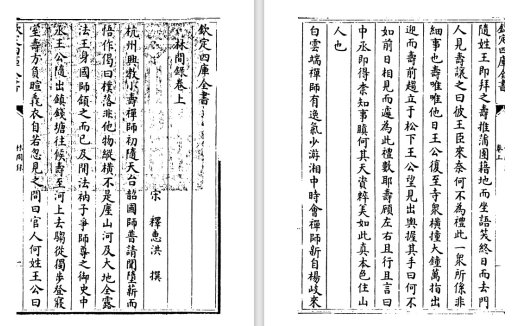 欽定四庫全書
林間錄卷上
宋 釋惠洪 撰
杭州興教小壽禪師初隨天台韶國師普請聞墮薪而
悟作偈曰樸落非他物縱橫不是塵山河及大地全露
法王身國師頷之而已及開法衲子爭師尊之御史中
丞王公隨出鎮錢塘往候壽至河上去騶從獨步登寢
室壽方負暄毳衣自若忽見之問曰官人何姓王公曰
林間錄
欽定四庫全書
卷上
隨姓王即拜之壽推蒲團藉地而坐語笑終日而去門
人見壽讓之曰彼王臣來奈何不為禮此一衆所係非
細事也壽唯唯他日王公復至寺衆橫撞大鐘萬指出
迎而壽前趨立于松下王公望見出輿握其手曰何不
如前日相見而遽為此禮數耶壽顧左右且行且言曰
中丞即得柰知事瞋何其天資粹美如此真本色住山
人也
白雲端禪師有逸氣少游湘中時會禪師新自楊岐來